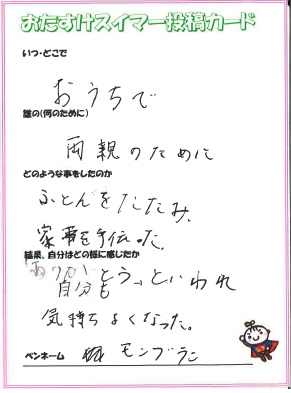 おたすけスイマー投稿カード
いつ・どこで
おうちで
誰の(何のために)
両親のために
どのような事をしたのか
ふとんをたたみ、
家事を手伝った。
結果、自分はどの様に感じたか
「ありがとう」といわれ
自分も
気持ちよくなった。
ペンネーム
モンブラン